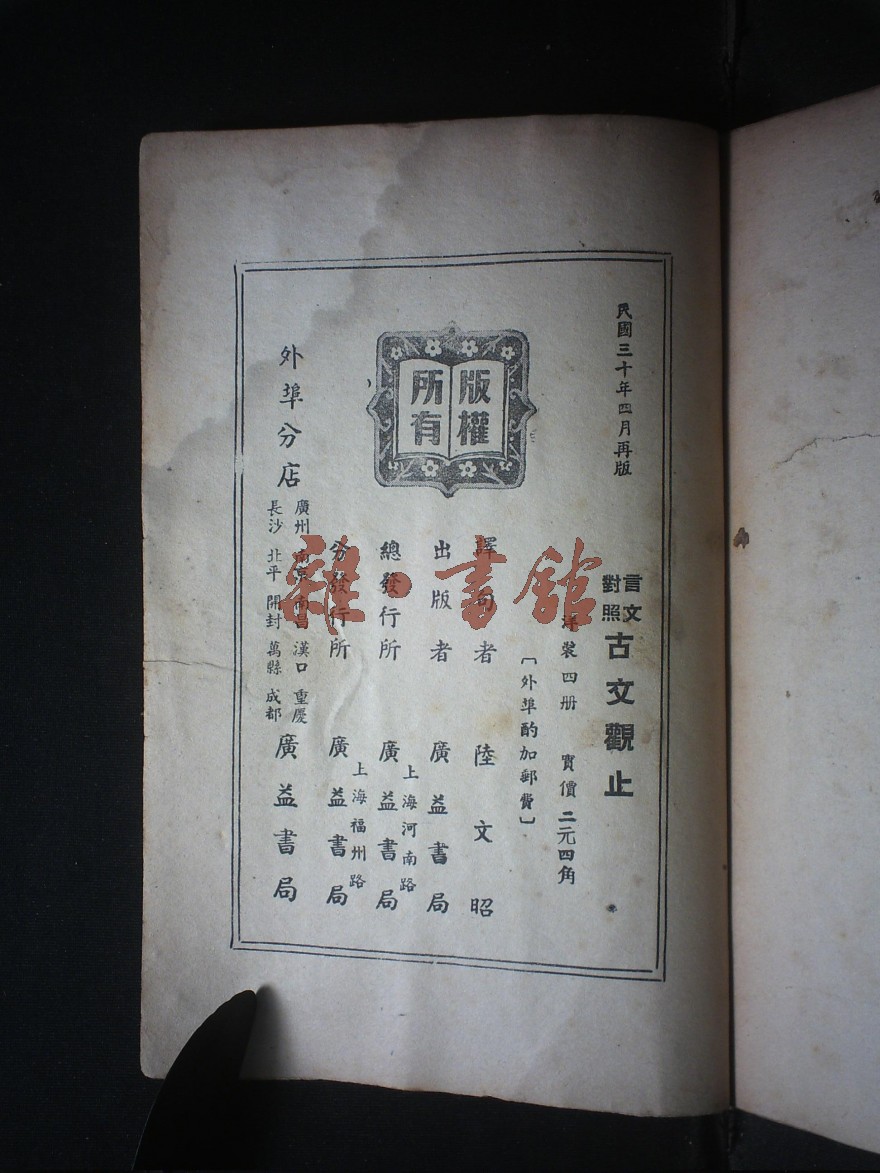 民國三十年四月再版
言文對照 古文觀止
洋裝四册 實價二元四角
〔外埠酌加郵費〕
譯者 陸文昭
出版者 廣益書局
總發行所 上海河南路 廣益書局
分發行所 上海福州路 廣益書局
外埠分店 廣州 南京 南昌 漢口 重慶
長沙 北平 開封 萬縣 成都 廣益書局
版權所有
雜·書館